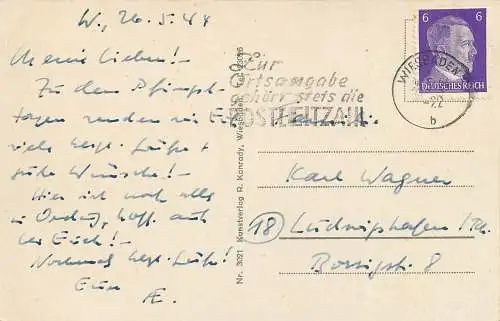 W., 26.5.44
Meine Lieben! –
Zu den Pfingst-
tagen senden wir E
viele herzl. Grüße +
gute Wünsche! –
Hier ist noch alles
in Ordng, hoff. auch
bei Euch! –
Nochmals herzl. Grüße!
Eure
Æ.
Nr. 3021 Kunstverlag R. Konrady, Wiesbaden,
Zur
Ortsangabe
gehört stets die
POSTLEITZAHL
6 6
DEUTSCHES REICH
WIESBADEN
22
b
Familie
Karl Wagner
(18) Ludwigshafen/Rh.
Borsigstr. 8